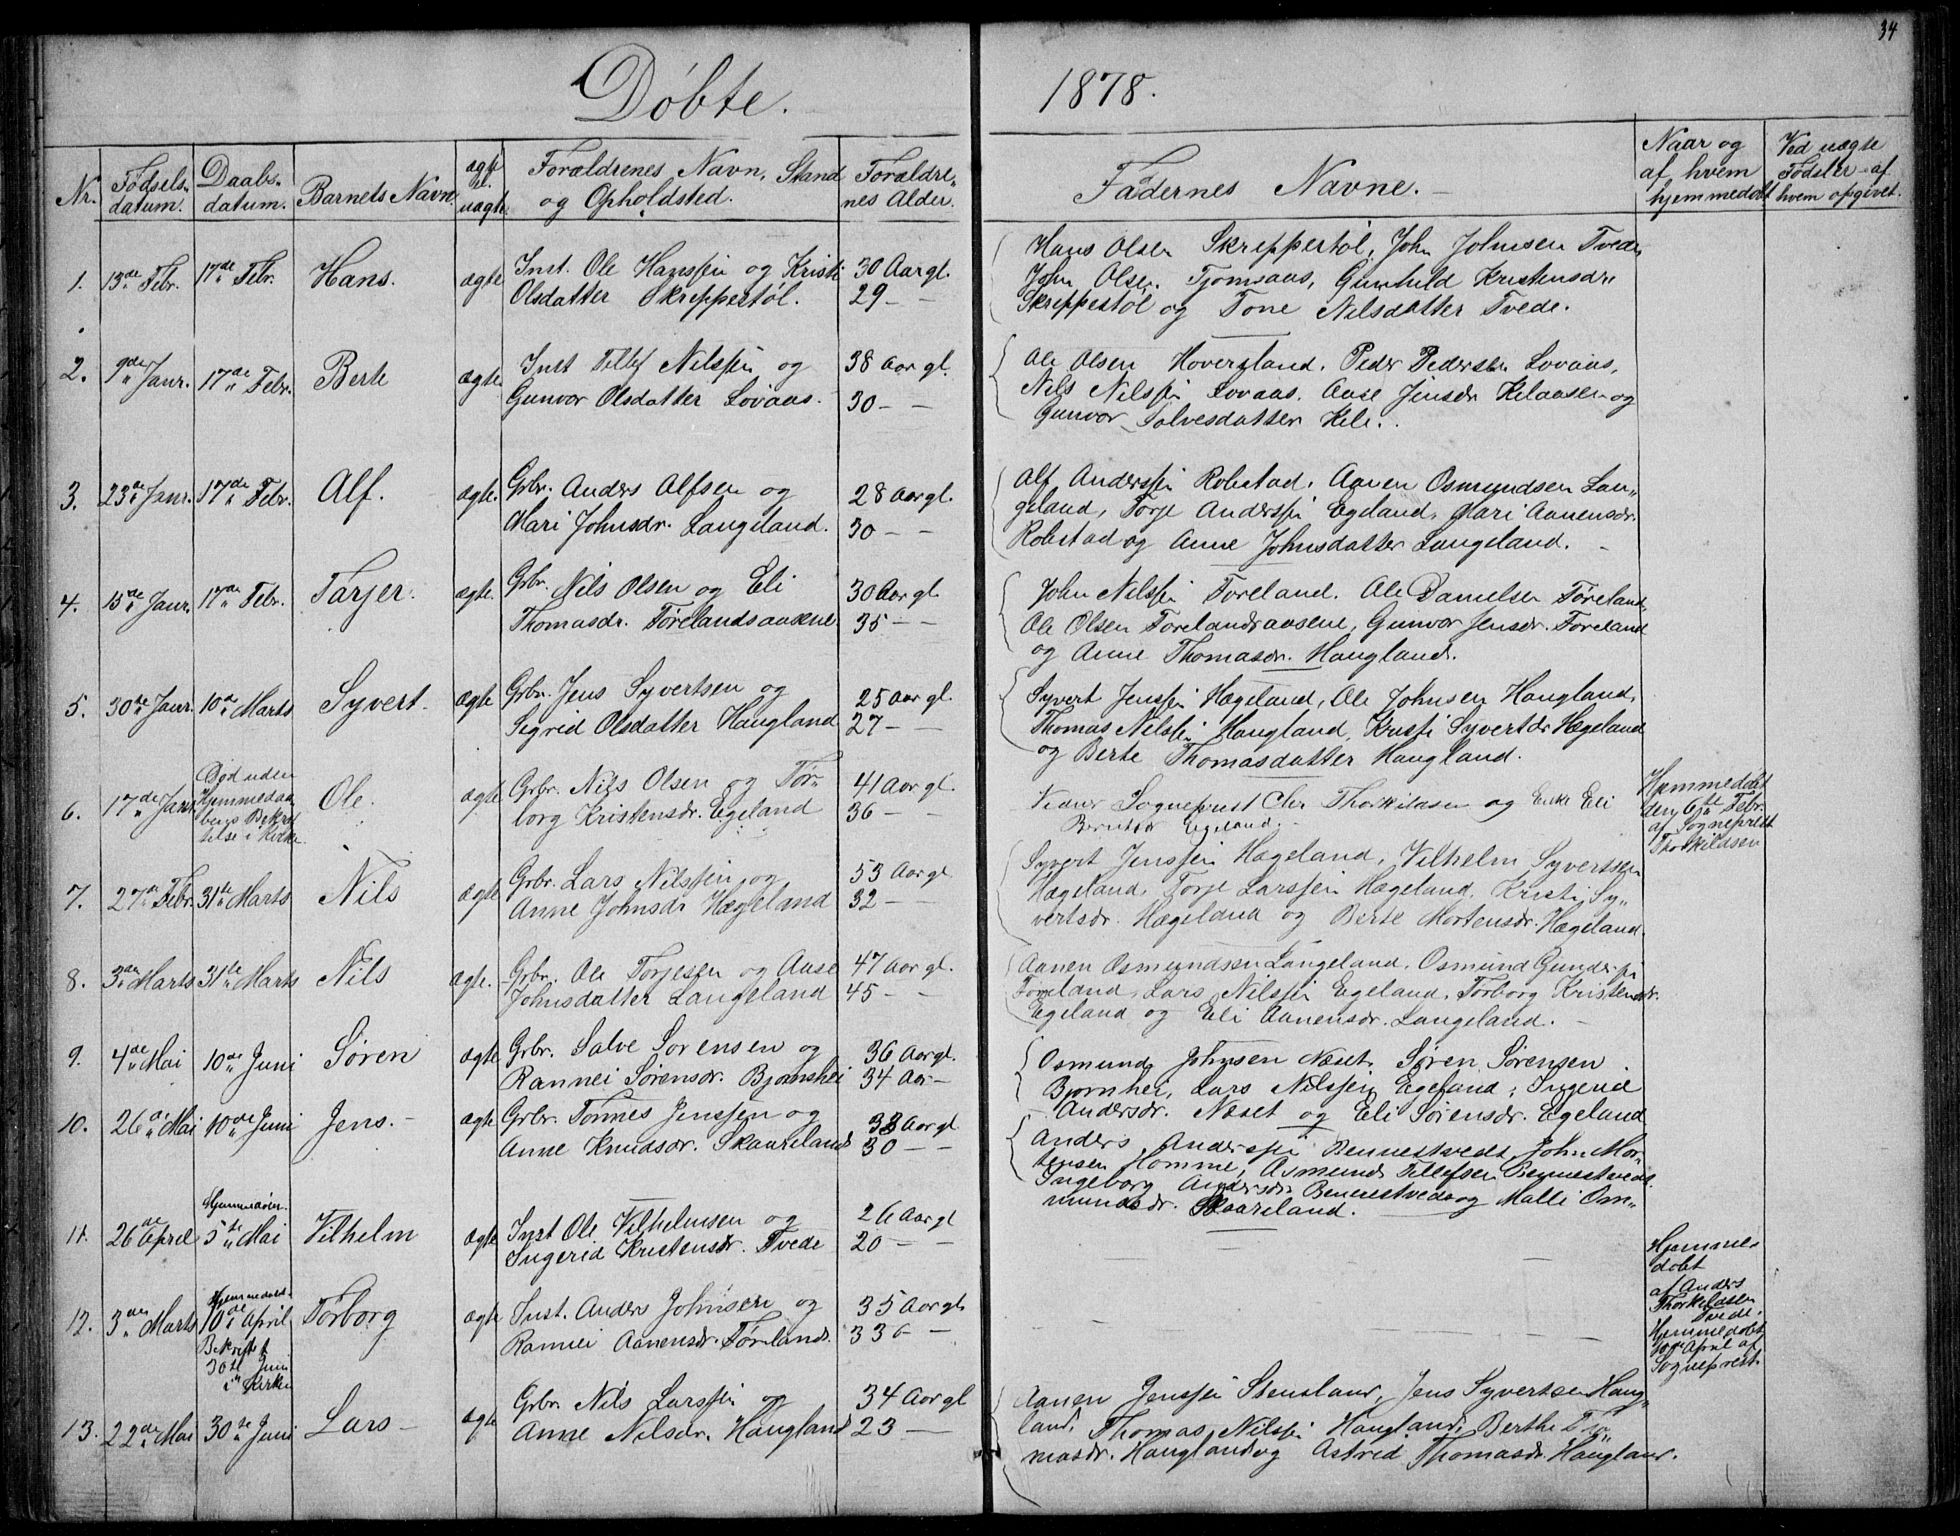 34
Døbte. 1878.
Nr. Fødsels- datum. Daabs- datum. Barnets Navn ægte el. uægte Forældrenes Navn, Stand og Opholdsted. Forældre- nes Alder. Faddernes Navne. Naar og af hvem hjemmedøbt Ved uægte Fødsler af hvem opgivet.
1. 13de Febr. 17de Febr. Hans. ægte Inst. Ole Hanssen og Kristi 30 Aar gl.
Olsdatter Skreppestøl. 29 — —
Hans Olsen Skreppestøl, John Johnsen Tvede,
John Olsen Tjomsaas, Gunhild Kristensdr.
Skreppestøl og Tone Nilsdatter Tvede.
2. 9de Janr. 17de Febr. Berte ægte Inst Tellef Nilssen og 38 Aar gl.
Gunvor Olsdatter Lovaas. 30 — —
Ole Olsen Hoversland. Peder Pedersen Lovaas,
Nils Nilssen Lovaas. Aase Jensdr Kelaasen og
Gunvor Salvesdatter Kile.
3. 23de Janr. 17de Febr. Alf. ægte. Grbr. Anders Alfsen og 28 Aar gl.
Mari Johnsdr. Langeland. 30 — —
Alf Anderssen Robstad. Aanen Osmundsen Lan-
geland, Torje Anderssen Egeland, Mari Aanensdr.
Robstad og Anne Johnsdatter Langeland.
4. 15de Janr. 17de Febr. Tarjer. ægte. Grbr. Nils Olsen og Eli 30 Aar gl.
Thomasdr. Førelandsaasene 35 — —
John Nilssen Føreland. Ole Danielsen Føreland,
Ole Olsen Førelandsaasene, Gunvor Jensdr. Føreland
og Anne Thomasdr. Haugland.
5. 30te Janr. 10de Marts Syvert. ægte Grbr. Jens Syvertsen og 25 Aar gl.
Sigrid Olsdatter Haugland 27 — —
Syvert Jenssen Hægeland, Ole Johnsen Haugland,
Thomas Nilssen Haugland, Kristi Syvertdr Hægeland
og Berte Thomasdatter Haugland.
6. 17de Janr Død uden Hjemmedaabens Bekræftelse i Kirke. Ole. ægte Grbr. Nils Olsen og Tor-
borg Kristensdr. Egeland 41 Aar gl.
36 — —
Vidner Sogneprest Chr Thorkildsen og Enke Eli
Berntsdr Egeland.
Hjemmedøbt den 6te Febr. af Sogneprest Thorkildsen
7. 27de Febr. 31te Marts Nils ægte Grbr. Lars Nilssen og 53 Aar gl
Anne Johnsdr Hægeland 32 — —
Syvert Jenssen Hægeland, Vilhelm Syvertsen
Hægeland, Torje Larssen Hægeland, Kristi Sy-
vertsdr. Hægeland og Berte Mortensdr. Hægeland.
8. 3de Marts 31te Marts Nils ægte. Grbr. Ole Torjesen og Aase 47 Aar gl.
Johnsdatter Langeland 45 — —
Aanen Osmundsen Langeland. Osmund Gunderssen
Føreland, Lars Nilssen Egeland, Torborg Kristensdr.
Egeland og Eli Aanensdr. Langeland.
9. 4de Mai 10de Juni Søren ægte Grbr. Salve Sørensen og 36 Aar gl.
Rannei Sørensdr. Bjørnshei 34 Aar —
Osmund Johnsen Næset. Søren Sørensen
Bjørnhei, Lars Nilssen Egeland, Ingerid
Andersdr. Næset og Eli Sørensdr. Egeland
10. 26de Mai 10de Juni Jens. — ægte Grbr. Tønnes Jenssen og 38 Aar gl
Anne Knudsdr. Skaareland 30 — —
Anders Anderssen Bennestvedt, John Mor-
tensen Homme, Asmund Tellefsen Bennestvedt.
Ingeborg Andersdr Bennestvedt og Malli Os-
mundsdr. Skaareland.
11. 26de April Hjemmedøbt 5te Mai Vilhelm ægte Inst Ole Vilhelmsen og 26 Aar gl
Ingerid Kristensdr. Tvede 20 — —
Hjemme- døbt af Anders Thorkildsen Tvede.
12. 3de Marts Hjemmedøbt 10de April Bekræftet 30te Juni i Kirken Torborg ægte Inst. Anders Johnsen og 35 Aar gl.
Rannei Aanensdr. Føreland. 33 — —
Hjemmedøbt 10de April af Sogneprest.
13. 22de Mai 30te Juni Lars — ægte Grbr. Nils Larssen og 34 Aar gl
Anne Nilsdr. Haugland 23 —
Aanen Jenssen Stensland, Jens Syvertsen Haug-
land, Thomas Nilssen Haugland, Berthe Tho-
masdr. Haugland og Astrid Thomasdr. Haugland.